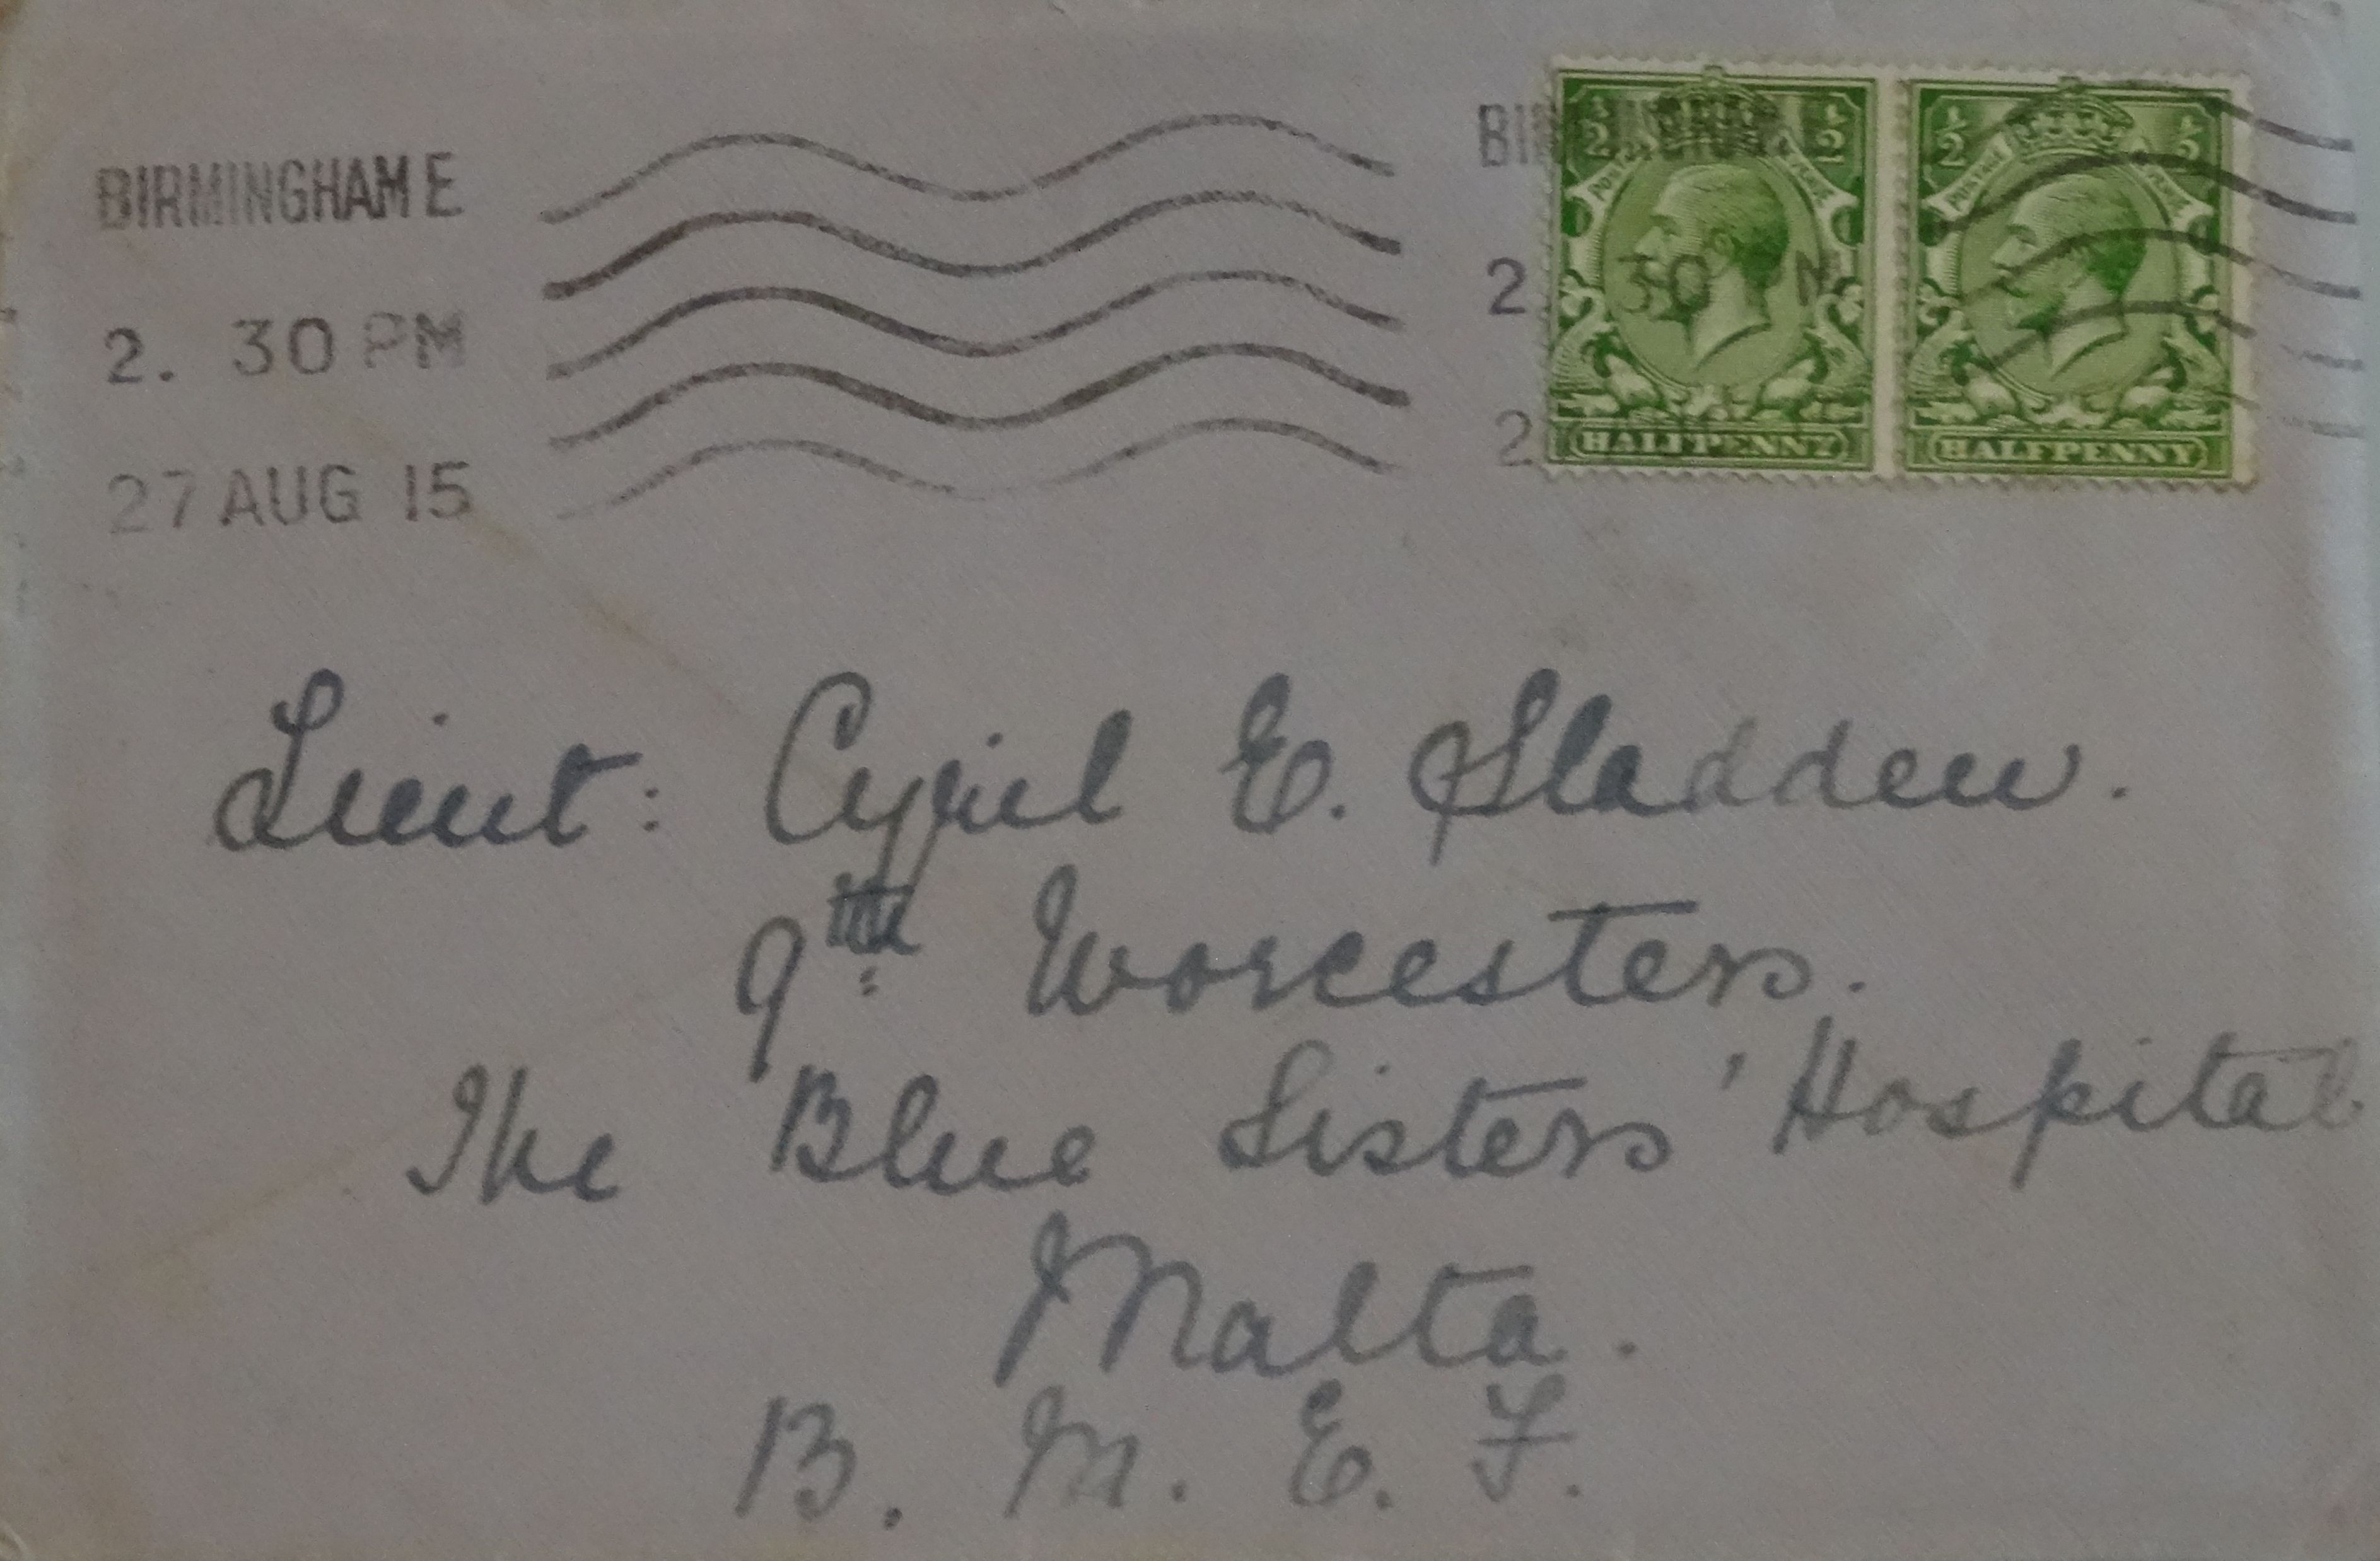 BIRMINGHAM E
2. 30 PM
27 AUG 15
½ ½
POSTAGE
30
HALFPENNY
½ ½
POSTAGE
HALFPENNY
Lieut: Cyril E. Sladden.
9th Worcesters.
The Blue Sisters' Hospital
Malta.
B. M. E. F.